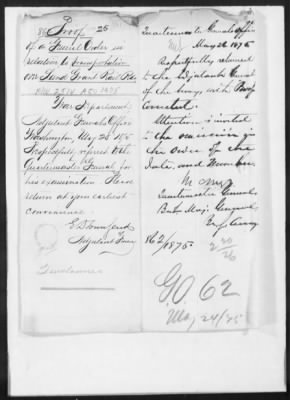 Proof 25
of a General Order in
relation to transportation
over Land Grant Rail Rds
War Department
Adjutant General's Office
Washington May 25 1875
Respectfully referred to the
Quartermaster General for
his examination. Please
return at your earliest
convenience.
E D Townsend
Adjutant Genl
Quartermaster Generals Office
May 26 1875
Respectfully returned
to the Adjutant General
of the Army, with Proof
corrected.
Attention is invited
to the omission in
the Order of the
date, and Number.
Quartermaster General
Bvt Maj. General
U.S. Army
862/1875.
GO 62
May 24/75